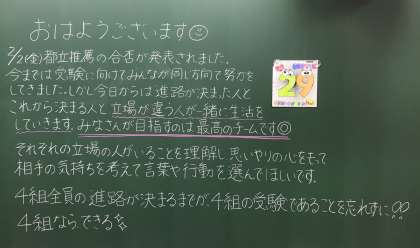 おはようございます☺
2/2(金)都立推薦の合否が発表されました。
今までは受験に向けてみんなが同じ方向で努力を
してきました。しかし今日からは進路が決まった人と
これから決まる人と立場が違う人が一緒に生活を
していきます。みなさんが目指すのは最高のチームです◎
それぞれの立場の人がいることを理解し思いやりの心をもって
相手の気持ちを考えて言葉や行動を選んでほしいです。
4組全員の進路が決まるまでが、4組の受験であることを忘れずに!!
4組ならできる☆
29